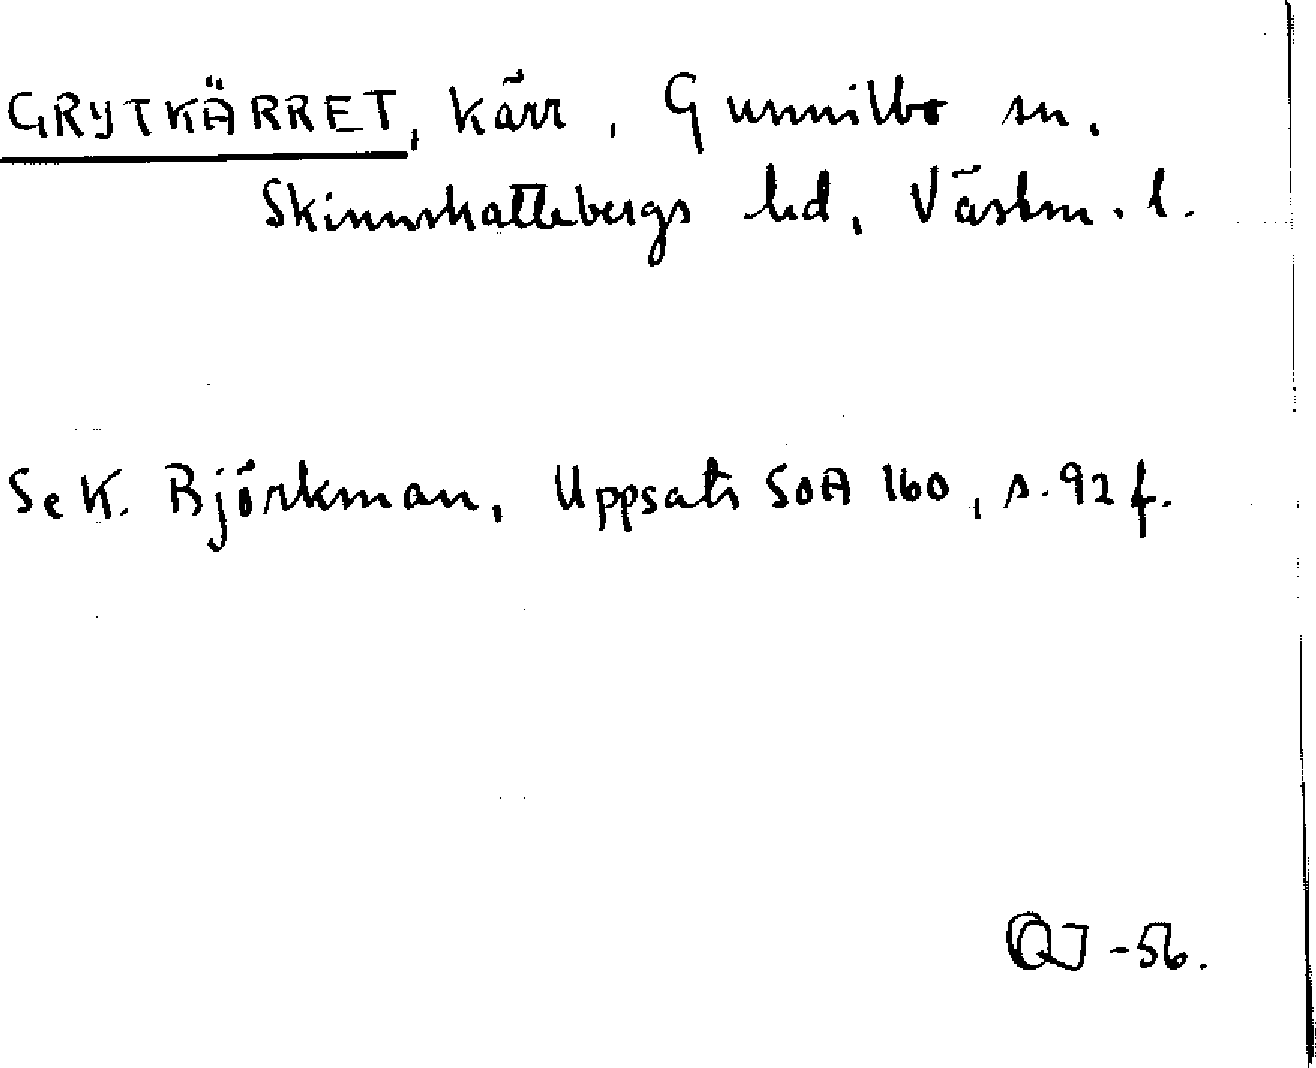 GRYTKÄRRET, kärr, Gunnilbo sn.
Skinnskattebergs hd, Västm. l.
Se K. Björkman, Uppsats SOA 160, s. 92 f.
QJ -56.